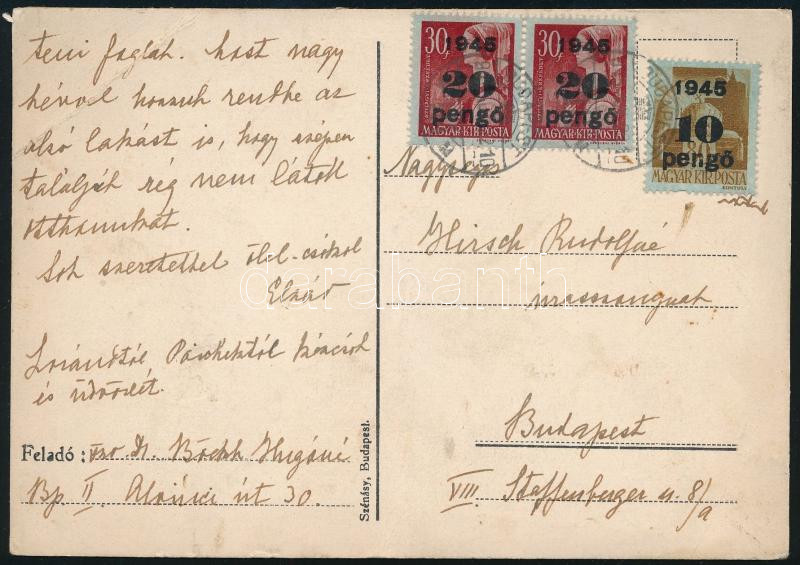 teni foglak. host nagy
hévvel hozzuk rendbe az
alsó lakást is, hogy szépen
találják rég nem látott
otthonukat.
Sok szeretettel ölel-csókol
Lorándtól Páréktól
és üdvözlet.
Feladó: özv Dr. Böckh Hugóné
Bp II. Alvinci út 30.
Szénásy, Budapest.
30f
1945
20
pengő
MAGYAR KIR. POSTA
30f
1945
20
pengő
MAGYAR KIR. POSTA
1945
10
pengő
80
MAGYAR KIR. POSTA
Nagys
Hirsch Rudolfné
úrasszonynak
Budapest
VIII. Staffenberger u. 8/a
darabanth